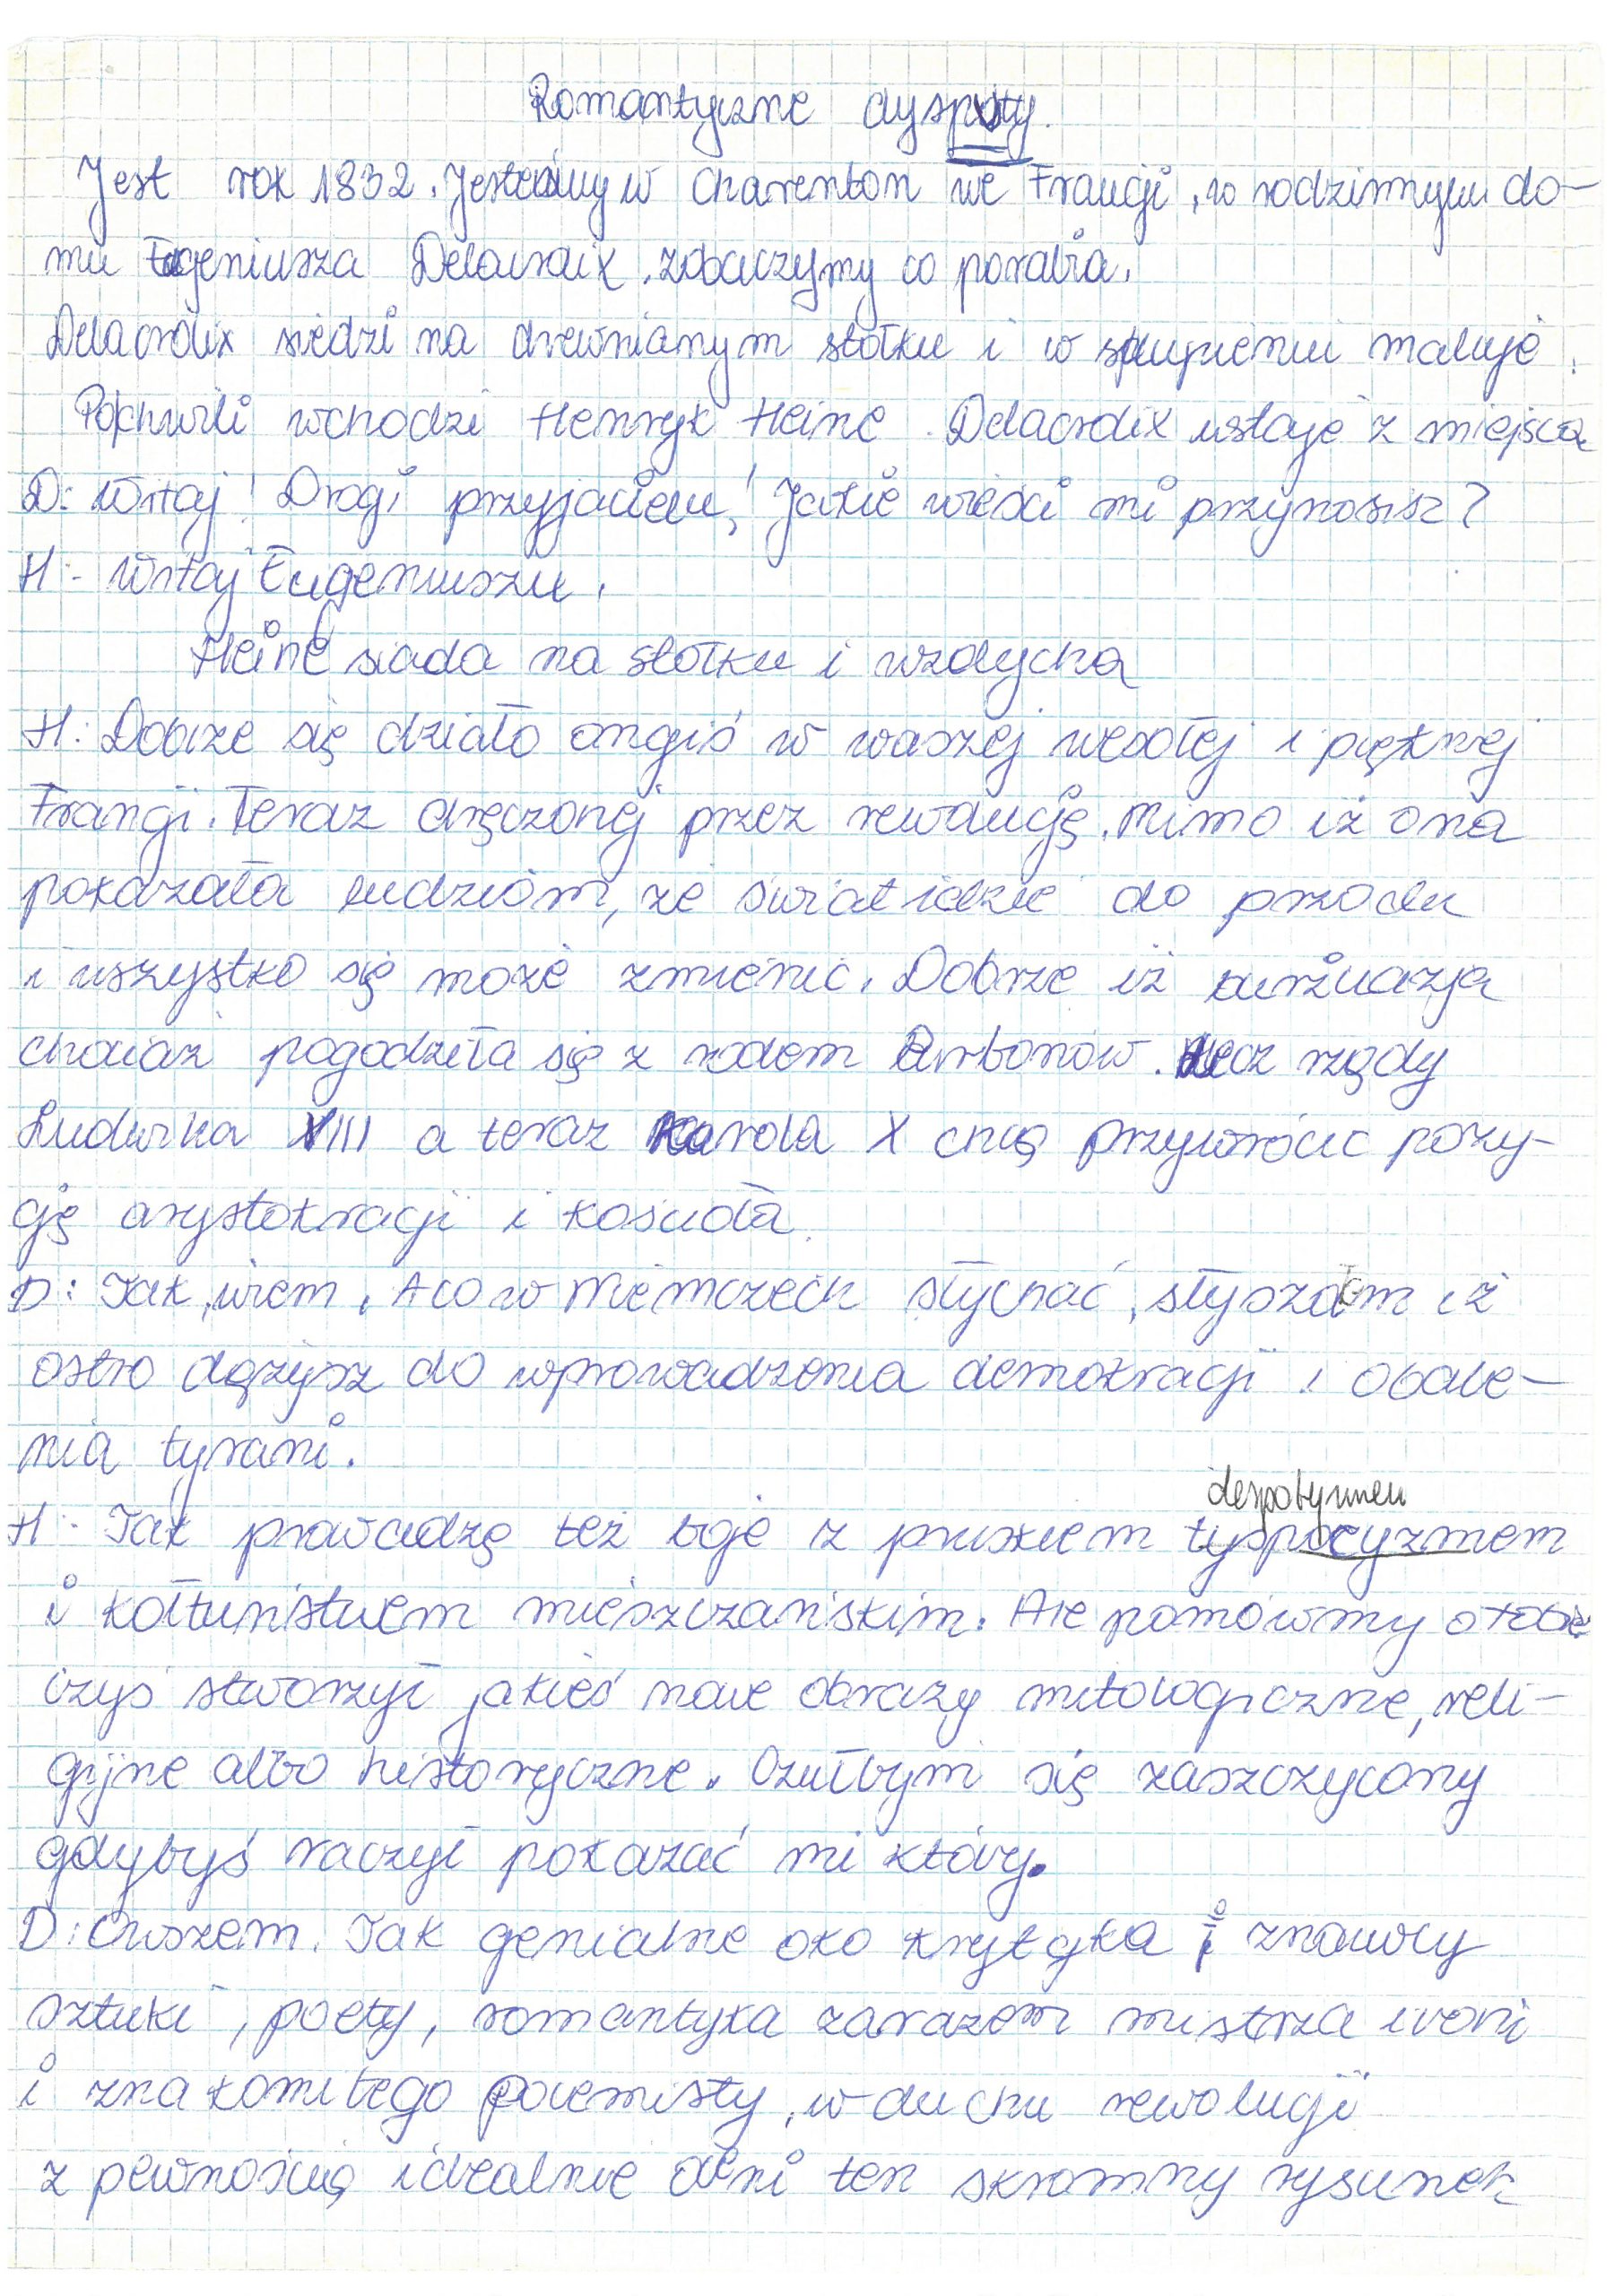 Romantyczne dysputy.
Jest rok 1832. Jesteśmy w Charenton we Francji, w rodzinnym do-
mu Eugeniusza Delacroix. zobaczymy co porabia.
Delacroix siedzi na drewnianym stołku i w skupieniu maluje.
Po chwili wchodzi Henryk Heine. Delacroix wstaje z miejsca
D: Witaj! Drogi przyjacielu! Jakie wieści mi przynosisz?
H:- Witaj Eugeniuszu.
Heine siada na stołku i wzdycha
H: Dobrze się działo ongiś w waszej wesołej i pięknej
Francji. Teraz dręczonej przez rewolucję. Mimo iż ona
pokazała ludziom, że świat idzie do przodu
i wszystko się może zmienić. Dobrze iż burżuazja
chociaż pogodziła się z rodem Burbonów. Lecz rządy
Ludwika XVIII a teraz Karola X chcą przywrócić pozy-
cję arystokracji i kościoła.
D: Tak, wiem. A co w Niemczech słychać, słyszałem iż
ostro dążysz do wprowadzenia demokracji i obale-
nia tyrani.
despotyzmem
H:- Tak prowadzę też boje z pruskiem typocyzmem
i kołtuństwem mieszczańskim. Ale pomówmy o tobie
czyś stworzył jakieś nowe obrazy mitologiczne, reli-
gijne albo historyczne. Czułbym się zaszczycony
gdybyś raczył pokazać mi który.
D: Owszem. Tak genialne oko krytyka i znawcy
sztuki, poety, romantyka zarazem mistrza ironi
i znakomitego polemisty, w duchu rewolucji
z pewnością idealnie oceni ten skromny rysunek